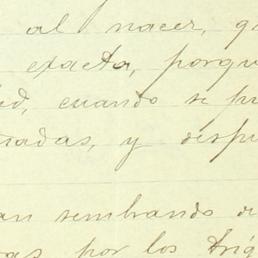 al nacer, q
exacta, porqu
ed, cuando se pu
adas, y despu
an sembrando d
as por los trig